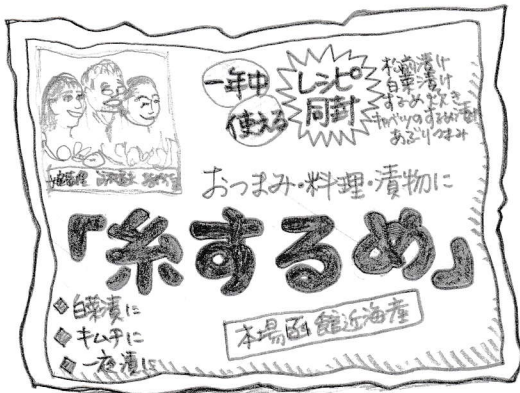 一年中
使える
レシピ
同封
松前漬け
白菜漬け
するめ炊き
キャベツのするめ漬け
あぶりつまみ
おつまみ・料理・漬物に
「糸するめ」
◆白菜漬に
◆キムチに
◆一夜漬に
本場函館近海産